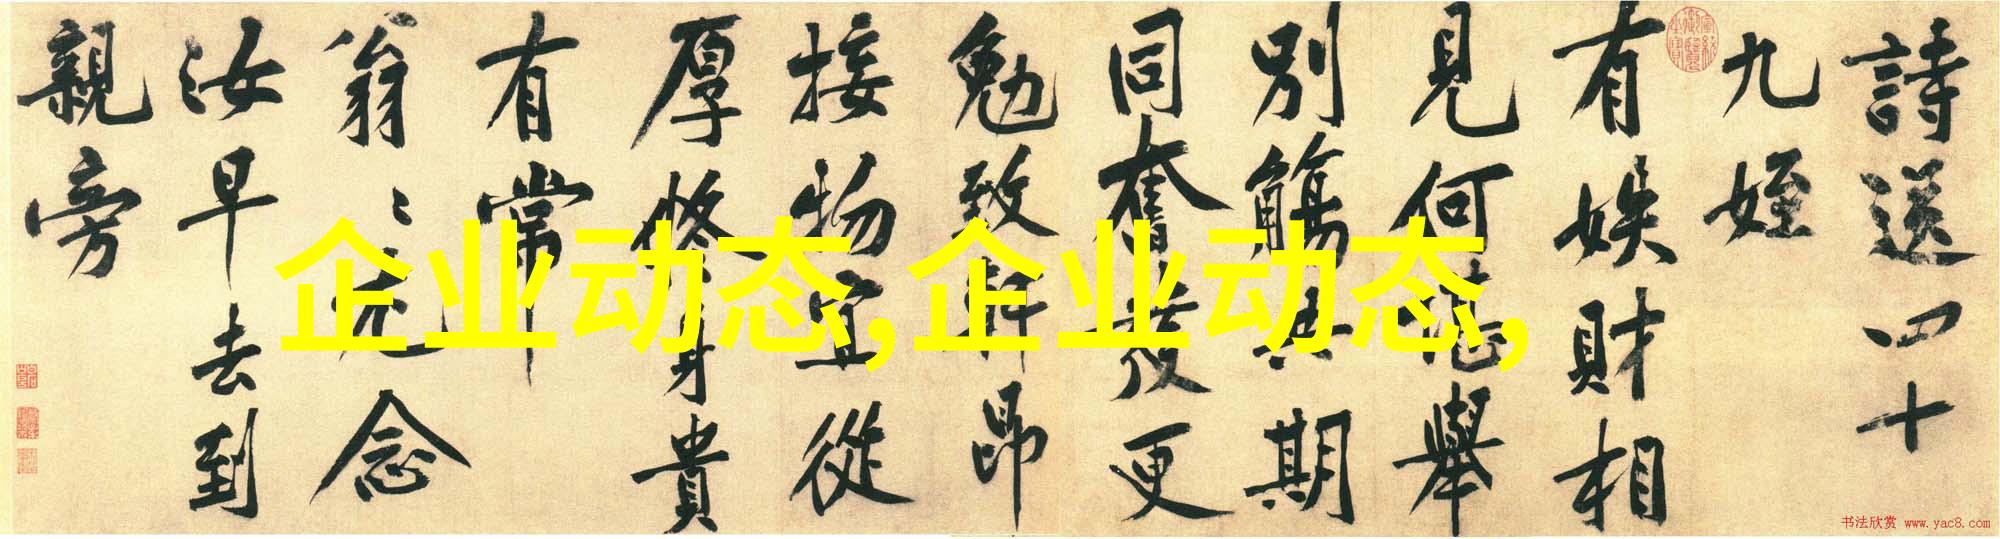 詩送四十
九姪
有娱財相
見何舉
別觴吾期
同奮發更
勉致軒昂
接物宜從
厚修身貴
有常
翁〻元念
汝早去到
親旁
企业动态,企业动态,
书法欣赏 www.yac8.com